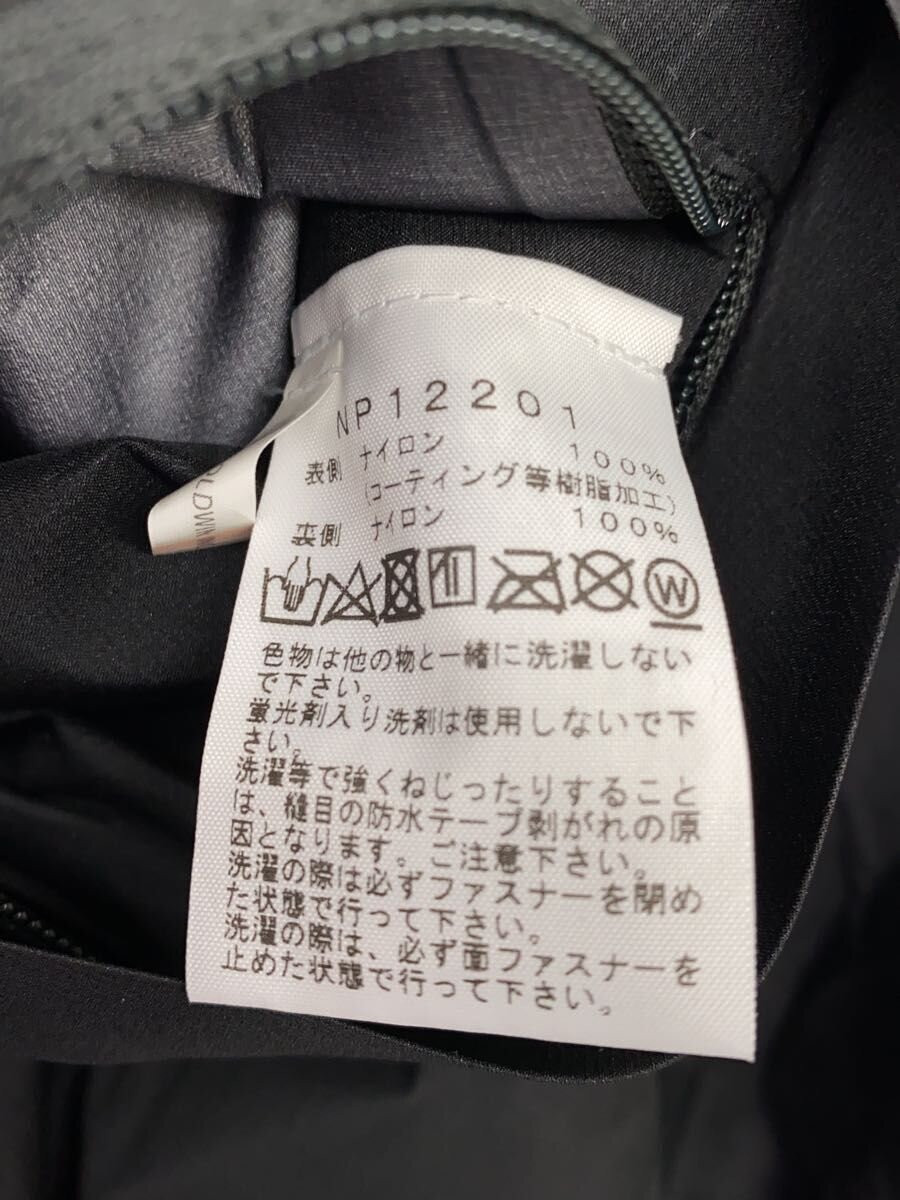 NP12201
表側 ナイロン 100%
(コーティング等樹脂加工)
裏側 ナイロン 100%
W
色物は他の物と一緒に洗濯しない
で下さい。
蛍光剤入り洗剤は使用しないで下
さい。
洗濯等で強くねじったりすること
は、縫目の防水テープ剥がれの原
因となります。ご注意下さい。
洗濯の際は必ずファスナーを閉め
た状態で行って下さい。
洗濯の際は、必ず面ファスナーを
止めた状態で行って下さい。